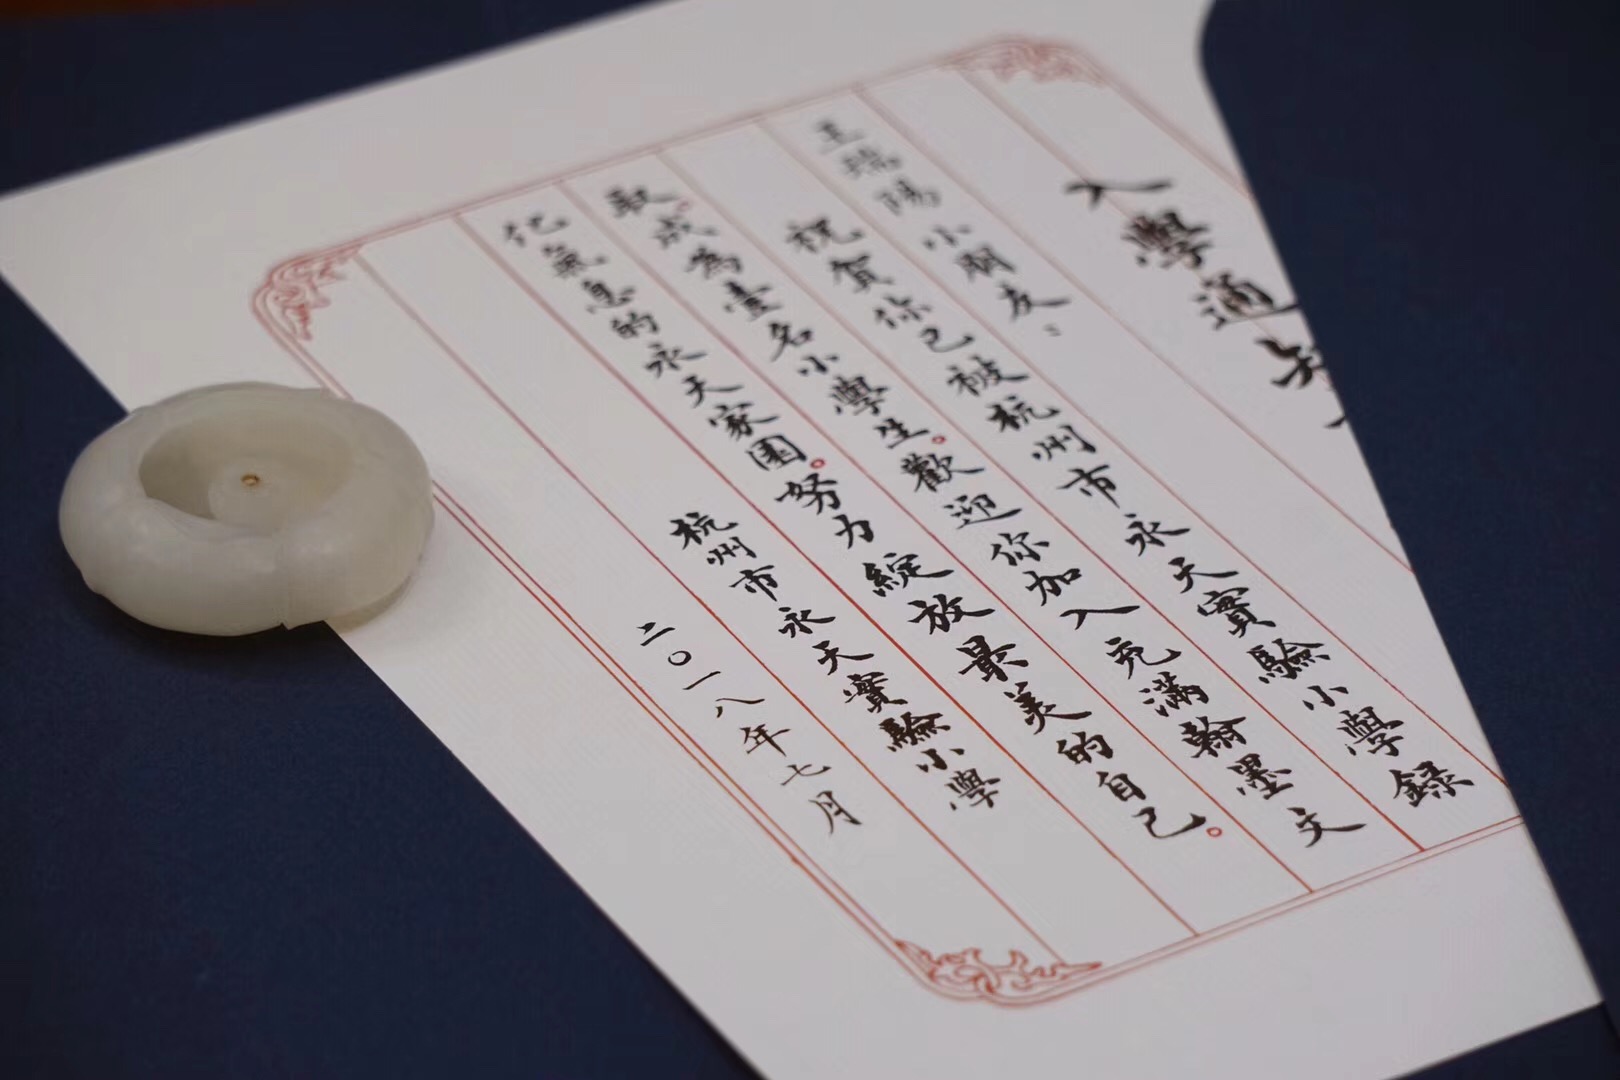 入學通知
王陽小朋友：
祝賀你已被杭州市永天實驗小學録
取。成為壹名小學生。歡迎你加入充滿翰墨文
化氣息的永天家園。努力綻放最美的自己。
杭州市永天實驗小學
二〇一八年七月